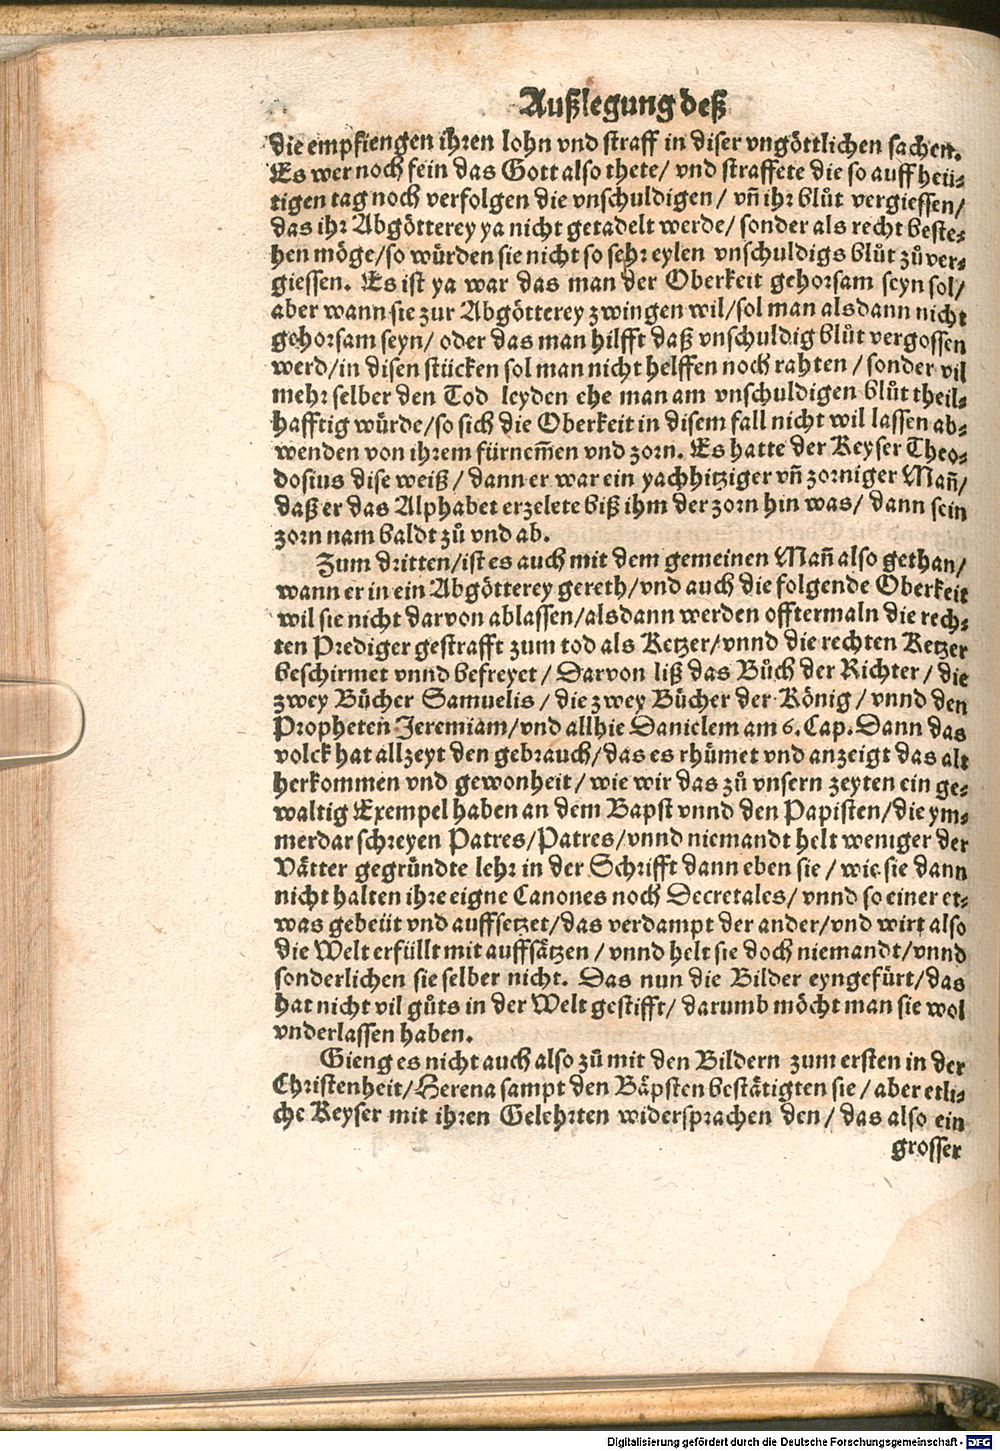 Außlegung deß
die empfiengen ihren lohn vnd straff in diser vngöttlichen sachen.
Es wer noch fein das Gott also thete/ vnd straffete die so auff heü-
tigen tag noch verfolgen die vnschuldigen/ vñ ihr blůt vergiessen/
das ihr Abgötterey ya nicht getadelt werde/ sonder als recht beste-
hen möge/ so würden sie nicht so sehr eylen vnschuldigs blůt zů ver-
giessen. Es ist ya war das man der Oberkeit gehorsam seyn sol/
aber wann sie zur Abgötterey zwingen wil/ sol man alsdann nicht
gehorsam seyn/ oder das man hilfft daß vnschuldig blůt vergossen
werd/ in disen stücken sol man nicht helffen noch rahten/ sonder vil
mehr selber den Tod leyden ehe man am vnschuldigen blůt theil-
hafftig würde/ so sich die Oberkeit in disem fall nicht wil lassen ab-
wenden von ihrem fürnem̃en vnd zorn. Es hatte der Keyser Theo-
dosius dise weiß/ dann er war ein yachhitziger vñ zorniger Mañ/
daß er das Alphabet erzelete biß ihm der zorn hin was/ dann sein
zorn nam baldt zů vnd ab.
Zum dritten/ ist es auch mit dem gemeinen Mañ also gethan/
wann er in ein Abgötterey gereth/ vnd auch die folgende Oberkeit
wil sie nicht darvon ablassen/ alsdann werden offtermaln die rech-
ten Prediger gestrafft zum tod als Ketzer/ vnnd die rechten Ketzer
beschirmet vnnd befreyet/ Darvon liß das Bůch der Richter/ die
zwey Bücher Samuelis/ die zwey Bücher der König/ vnnd den
Propheten Jeremiam/ vnd allhie Danielem am 6. Cap. Dann das
volck hat allzeyt den gebrauch/ das es rhümet vnd anzeigt das alt
herkommen vnd gewonheit/ wie wir das zů vnsern zeyten ein ge-
waltig Exempel haben an dem Bapst vnnd den Papisten/ die ym-
merdar schreyen Patres/ Patres/ vnnd niemandt helt weniger der
Vätter gegründte lehr in der Schrifft dann eben sie/ wie sie dann
nicht halten ihre eigne Canones noch Decretales/ vnnd so einer et-
was gebeüt vnd auffsetzet/ das verdampt der ander/ vnd wirt also
die Welt erfüllt mit auffsätzen/ vnnd helt sie doch niemandt/ vnnd
sonderlichen sie selber nicht. Das nun die Bilder eyngefürt/ das
hat nicht vil gůts in der Welt gestifft/ darumb möcht man sie wol
vnderlassen haben.
Gieng es nicht auch also zů mit den Bildern zum ersten in der
Christenheit/ Herena sampt den Bäpsten bestätigten sie/ aber etli-
che Keyser mit ihren Gelehrten widersprachen den/ das also ein
grosser
Digitalisierung gefördert durch die Deutsche Forschungsgemeinschaft - DFG